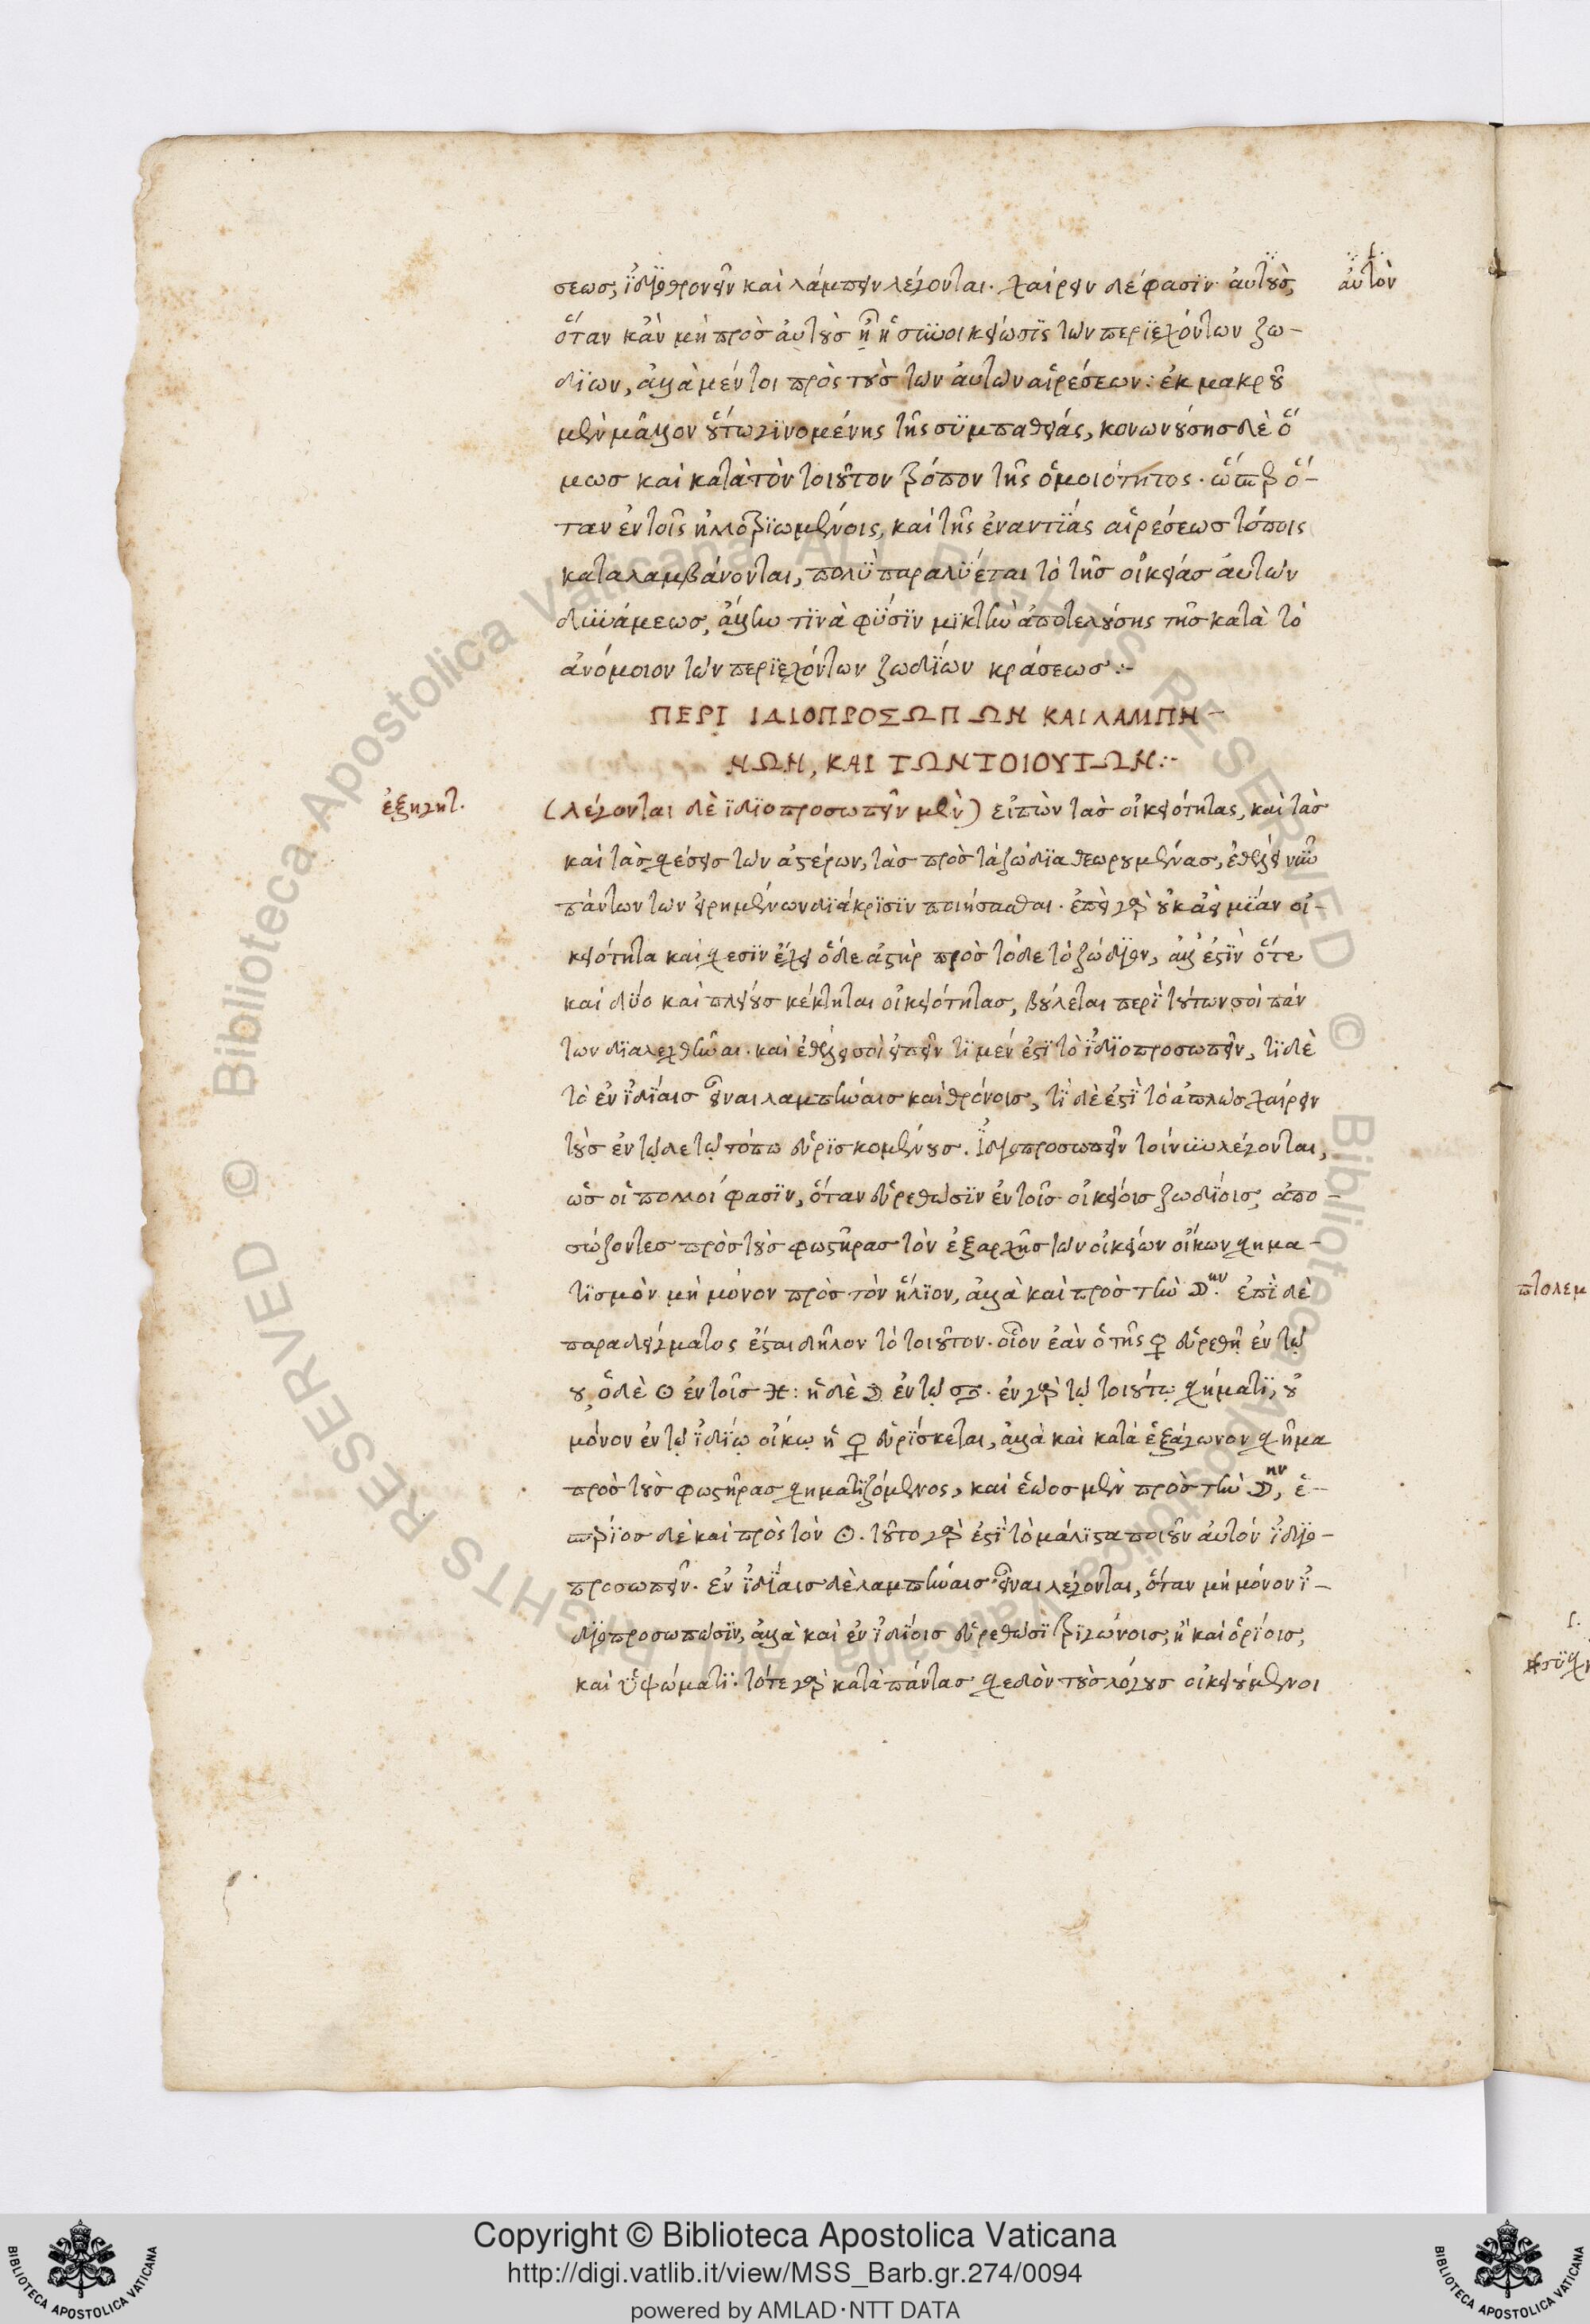 σεως, ἰδιοθρονεῖν καὶ λάμπειν λέγονται. χαίρειν δέ φασιν αὐτοὺς,
αὐτὸν
ὅταν κἂν μὴ πρὸς αὐτοὺς ᾖ ἡ συνοικείωσις τῶν περιεχόντων ζω-
δίων, ἀλλὰ μέντοι πρὸς τοὺς τῶν αὐτῶν αἱρέσεων: ἐκ μακροῦ
μὲν μᾶλλον οὕτω γινομένης τῆς συμπαθείας, κοινωνούσης δὲ ὅ
μως καὶ κατὰ τὸν τοιοῦτον τρόπον τῆς ὁμοιότητος. ὥσπερ ὅ-
ταν ἐν τοῖς ἠλλοτριωμένοις, καὶ τῆς ἐναντίας αἱρέσεως τόποις
καταλαμβάνονται, πολὺ παραλύεται τὸ τῆς οἰκείας αὐτῶν
δυνάμεως, ἄλλην τινὰ φύσιν μικτὴν ἀποτελούσης τῆς κατὰ τὸ
ἀνόμοιον τῶν περιεχόντων ζωδίων κράσεως :-
ΠΕΡΙ ΙΔΙΟΠΡΟΣΩΠΩΝ ΚΑΙ ΛΑΜΠΗ-
ΝΩΝ, ΚΑΙ ΤΩΝ ΤΟΙΟΥΤΩΝ:-
ἐξηγητ.
(λέγονται δὲ ἰδιοπροσωπεῖν μὲν) εἰπὼν τὰς οἰκειότητας, καὶ τὰς
καὶ τὰς σχέσεις τῶν ἀστέρων, τὰς πρὸς τὰ ζώδια θεωρουμένας, ἐθέλει νῦν
πάντων τῶν εἰρημένων διάκρισιν ποιήσασθαι. ἐπεὶ γὰρ οὐκ ἀεὶ μίαν οἰ-
κειότητα καὶ σχέσιν ἔχει ὅδε ἀστὴρ πρὸς τόδε τὸ ζώδιον, ἀλλ' ἐστὶν ὅτε
καὶ δύο καὶ πλείους κέκτηται οἰκειότητας, βούλεται περὶ τούτων σοι πάν
των διαλεχθῆναι. καὶ ἐθέλει σοὶ εἰπεῖν τί μέν ἐστι τὸ ἰδιοπροσωπεῖν, τί δὲ
τὸ ἐν ἰδίαις εἶναι λαμπήναις καὶ θρόνοις, τί δὲ ἐστὶ τὸ ἁπλῶς χαίρειν
τοὺς ἐν τῷδε τῷ τόπῳ εὑρισκομένους. ἰδιοπροσωπεῖν τοίνυν λέγονται,
ὡς οἱ πολλοί φασιν, ὅταν εὑρεθῶσιν ἐν τοῖς οἰκείοις ζωδίοις, ἀπο-
σώζοντες πρὸς τοὺς φωστῆρας τὸν ἐξαρχῆς τῶν οἰκείων οἴκων σχημα-
τισμὸν μὴ μόνον πρὸς τὸν ἥλιον, ἀλλὰ καὶ πρὸς τὴν ☽ην. ἐπὶ δὲ
παραδείγματος ἔσται δῆλον τὸ τοιοῦτον. οἷον ἐὰν ὁ τῆς ♀ εὑρεθῇ ἐν τῷ
♉, ὁ δὲ ☉ ἐν τοῖς ♓: ἡ δὲ ☽ ἐν τῷ ♋. ἐν γὰρ τῷ τοιούτῳ σχήματι, οὐ
μόνον ἐν τῷ ἰδίῳ οἴκῳ ἡ ♀ εὑρίσκεται, ἀλλὰ καὶ κατὰ ἑξάγωνον σχῆμα
πρὸς τοὺς φωστῆρας σχηματιζόμενος, καὶ ἑῷος μὲν πρὸς τὴν ☽ην, ἑ-
σπέριος δὲ καὶ πρὸς τὸν ☉. τοῦτο γάρ ἐστι τὸ μάλιστα ποιοῦν αὐτόν ἰδιο-
προσωπεῖν. ἐν ἰδίαις δὲ λαμπήναις εἶναι λέγονται, ὅταν μὴ μόνον ἰ-
διοπροσωπῶσιν, ἀλλὰ καὶ ἐν ἰδίοις εὑρεθῶσι τριγώνοις, ἢ καὶ ὁρίοις,
καὶ ὑψώματι. τότε γὰρ κατὰ πάντας σχεδὸν τοὺς λόγους οἰκειούμενοι
πτολεμ
Copyright © Biblioteca Apostolica Vaticana
http://digi.vatlib.it/view/MSS_Barb.gr.274/0094
powered by AMLAD·NTT DATA
BIBLIOTECA APOSTOLICA VATICANA
BIBLIOTECA APOSTOLICA VATICANA
© Biblioteca Apostolica Vaticana ALL RIGHTS RESERVED © Biblioteca Apostolica Vaticana ALL RIGHTS RESERVED